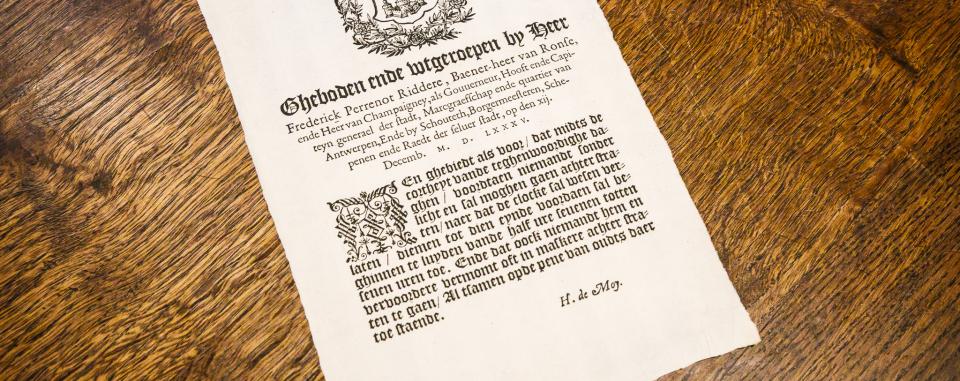 Gheboden ende wtgeroepen by Heer
Frederick Perrenot Riddere, Baener-heer van Ronse,
ende Heer van Champaigney, als Gouuerneur, Hooft ende Capi-
teyn generael der stadt, Marcgraefschap ende quartier van
Antwerpen, Ende by Schouteth, Borgermeesteren, Sche-
penen ende Raedt der seluer stadt, op den xij.
Decemb. M. D. LXXXV.
En ghebiedt als voor/ dat midts de
cortheyt vande teghenwoordighe da-
ghen/ voordaen niemandt sonder
licht en sal moghen gaen achter stra-
ten/ naer dat de clocke sal wesen ver-
laten/ diemen tot dien eynde voordaen sal be-
ghinnen te luyden vande half ure seuenen totten
seuen uren toe. Ende dat oock niemandt hem en
vervoordere vermomt oft in maskere achter stra-
ten te gaen/ Al tsamen opde pene van oudts daer
toe staende.
H. de Moy.